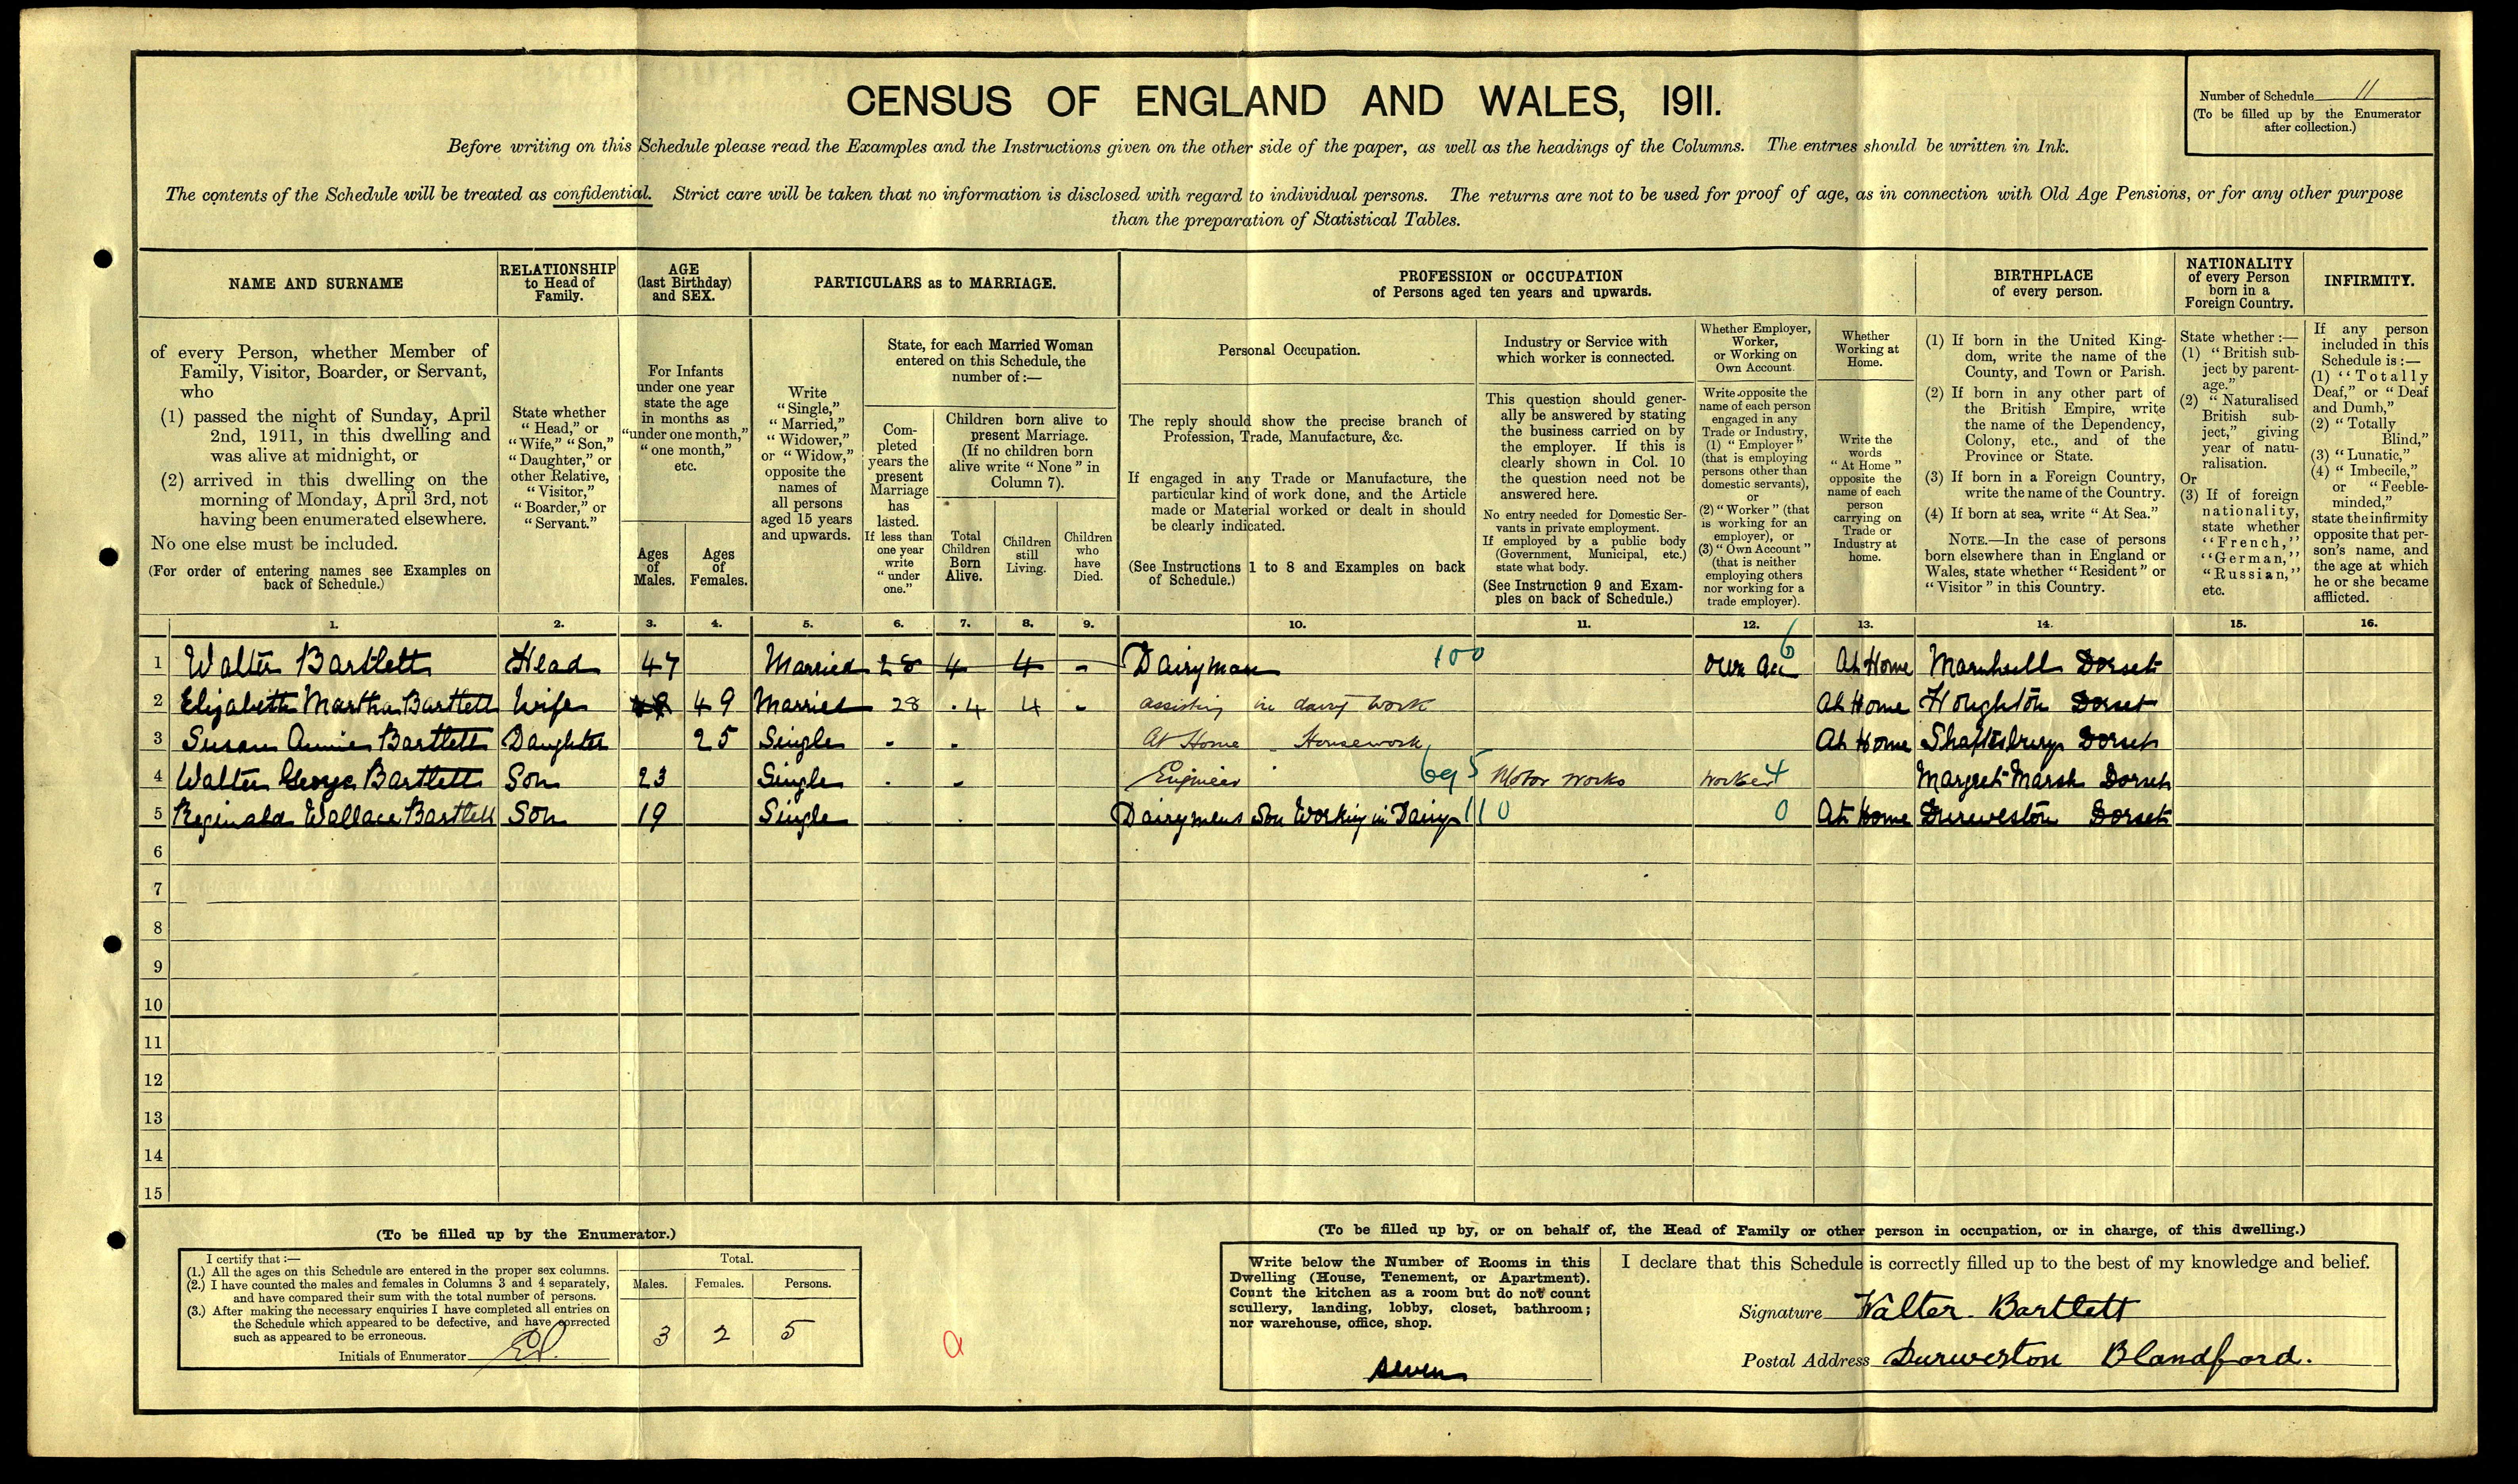 CENSUS OF ENGLAND AND WALES, 1911.
Number of Schedule 11
(To be filled up by the Enumerator
after collection.)
Before writing on this Schedule please read the Examples and the Instructions given on the other side of the paper, as well as the headings of the Columns. The entries should be written in Ink.
The contents of the Schedule will be treated as confidential. Strict care will be taken that no information is disclosed with regard to individual persons. The returns are not to be used for proof of age, as in connection with Old Age Pensions, or for any other purpose
than the preparation of Statistical Tables.
NAME AND SURNAME
of every Person, whether Member of
Family, Visitor, Boarder, or Servant,
who
(1) passed the night of Sunday, April
2nd, 1911, in this dwelling and
was alive at midnight, or
(2) arrived in this dwelling on the
morning of Monday, April 3rd, not
having been enumerated elsewhere.
No one else must be included.
(For order of entering names see Examples on
back of Schedule.)
RELATIONSHIP
to Head of
Family.
State whether
"Head," or
"Wife," "Son,"
"Daughter," or
other Relative,
"Visitor,"
"Boarder," or
"Servant."
AGE
(last Birthday)
and SEX.
For Infants
under one year
state the age
in months as
"under one month,"
"one month,"
etc.
Ages
of
Males.
Ages
of
Females.
PARTICULARS as to MARRIAGE.
Write
"Single,"
"Married,"
"Widower,"
or "Widow,"
opposite the
names of
all persons
aged 15 years
and upwards.
State, for each Married Woman
entered on this Schedule, the
number of:—
Com-
pleted
years the
present
Marriage
has
lasted.
If less than
one year
write
"under
one."
Children born alive to
present Marriage.
(If no children born
alive write "None" in
Column 7).
Total
Children
Born
Alive.
Children
still
Living.
Children
who
have
Died.
PROFESSION or OCCUPATION
of Persons aged ten years and upwards.
Personal Occupation.
The reply should show the precise branch of
Profession, Trade, Manufacture, &c.
If engaged in any Trade or Manufacture, the
particular kind of work done, and the Article
made or Material worked or dealt in should
be clearly indicated.
(See Instructions 1 to 8 and Examples on back
of Schedule.)
Industry or Service with
which worker is connected.
This question should gener-
ally be answered by stating
the business carried on by
the employer. If this is
clearly shown in Col. 10
the question need not be
answered here.
No entry needed for Domestic Ser-
vants in private employment.
If employed by a public body
(Government, Municipal, etc.)
state what body.
(See Instruction 9 and Exam-
ples on back of Schedule.)
Whether Employer,
Worker,
or Working on
Own Account.
Write opposite the
name of each person
engaged in any
Trade or Industry,
(1) "Employer"
(that is employing
persons other than
domestic servants),
or
(2) "Worker" (that
is working for an
employer), or
(3) "Own Account"
(that is neither
employing others
nor working for a
trade employer).
Whether
Working at
Home.
Write the
words
"At Home"
opposite the
name of each
person
carrying on
Trade or
Industry at
home.
BIRTHPLACE
of every person.
(1) If born in the United King-
dom, write the name of the
County, and Town or Parish.
(2) If born in any other part of
the British Empire, write
the name of the Dependency,
Colony, etc., and of the
Province or State.
(3) If born in a Foreign Country,
write the name of the Country.
(4) If born at sea, write "At Sea."
NOTE.—In the case of persons
born elsewhere than in England or
Wales, state whether "Resident" or
"Visitor" in this Country.
NATIONALITY
of every Person
born in a
Foreign Country.
State whether:—
(1) "British sub-
ject by parent-
age."
(2) "Naturalised
British sub-
ject," giving
year of natu-
ralisation.
Or
(3) If of foreign
nationality,
state whether
"French,"
"German,"
"Russian,"
etc.
INFIRMITY.
If any person
included in this
Schedule is:—
(1) "Totally
Deaf," or "Deaf
and Dumb,"
(2) "Totally
Blind,"
(3) "Lunatic,"
(4) "Imbecile,"
or "Feeble-
minded,"
state the infirmity
opposite that per-
son's name, and
the age at which
he or she became
afflicted.
1. 2. 3. 4. 5. 6. 7. 8. 9. 10. 11. 12. 13. 14. 15. 16.
1 Walter Bartlett Head 47 Married 28 4 4 - Dairyman 100 own ac 6 At Home Marnhull Dorset
2 Elizabeth Martha Bartlett Wife 49 Married 28 4 4 - assisting in dairy work At Home Houghton Dorset
3 Susan Annie Bartlett Daughter 25 Single - - At Home Housework At Home Shaftesbury Dorset
4 Walter George Bartlett Son 23 Single - - Engineer 695 Motor works Worker 4 Margret Marsh Dorset
5 Reginald Wallace Bartlett Son 19 Single Dairymens Son Working in Dairy 110 0 At Home Durweston Dorset
6
7
8
9
10
11
12
13
14
15
(To be filled up by the Enumerator.)
I certify that:—
(1.) All the ages on this Schedule are entered in the proper sex columns.
(2.) I have counted the males and females in Columns 3 and 4 separately,
and have compared their sum with the total number of persons.
(3.) After making the necessary enquiries I have completed all entries on
the Schedule which appeared to be defective, and have corrected
such as appeared to be erroneous.
Initials of Enumerator
Total.
Males. Females. Persons.
3 2 5
a
(To be filled up by, or on behalf of, the Head of Family or other person in occupation, or in charge, of this dwelling.)
Write below the Number of Rooms in this
Dwelling (House, Tenement, or Apartment).
Count the kitchen as a room but do not count
scullery, landing, lobby, closet, bathroom;
nor warehouse, office, shop.
seven
I declare that this Schedule is correctly filled up to the best of my knowledge and belief.
Signature Walter Bartlett
Postal Address Durweston Blandford.